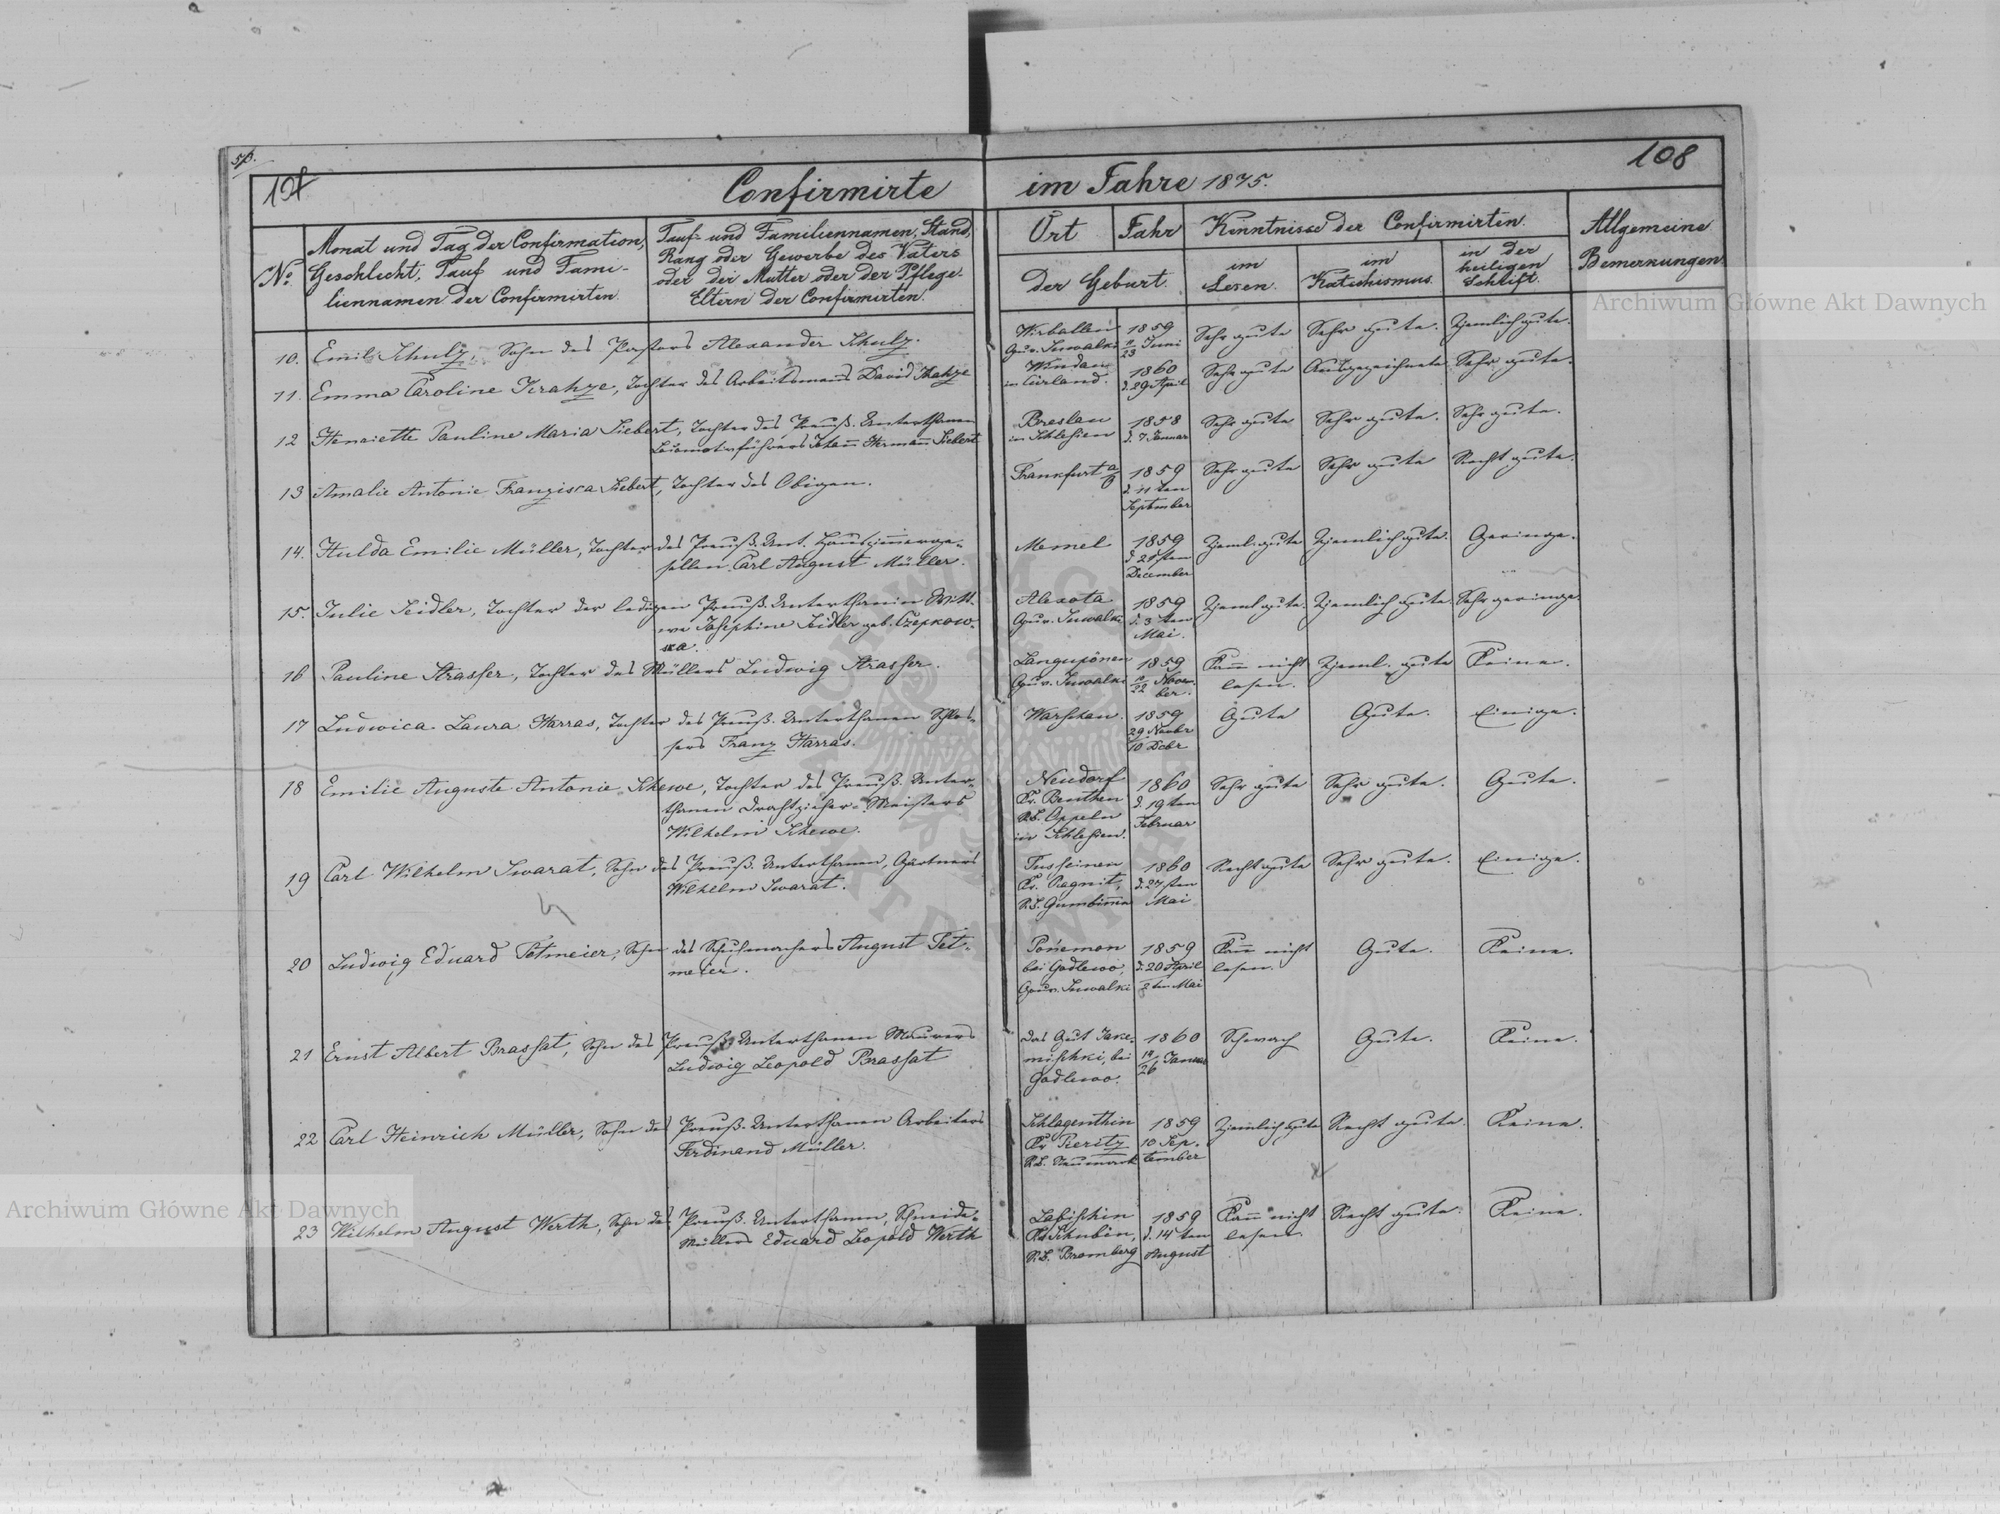 107
108
Confirmirte im Jahre 1875.
No.
Monat und Tag der Confirmation,
Geschlecht, Tauf und Fami-
liennamen der Confirmirten.
Tauf- und Familiennamen, Stand,
Rang oder Gewerbe des Vaters
oder der Mutter oder der Pflege-
Eltern der Confirmirten.
Ort
Jahr
der Geburt.
Kenntnisse der Confirmirten.
im
Lesen.
im
Katechismus.
in der
heiligen
Schrift.
Allgemeine
Bemerkungen
10. Emil Schulz, Sohn des Pastors Alexander Schulz.
Wirballen 1859 Sehr gute Sehr gute. Ziemlich gute.
Guv. Suwalki 11/23 Juni
11. Emma Caroline Krahze, Tochter des Arbeitsmanns David Krahze
Windau 1860 Sehr gute Ausgezeichnete Sehr gute.
in Curland. d. 29 April
12 Henriette Pauline Maria Siebert, Tochter des Preuß. Unterthanen
Locomotivführers Johann Hermann Siebert
Breslau 1858 Sehr gute Sehr gute. Sehr gute.
in Schlesien d. 7 Januar
13 Amalie Antonie Franzisca Siebert, Tochter des Obigen.
Frankfurt a/O 1859 Sehr gute Sehr gute Recht gute.
d. 11 ten
September
14. Hulda Emilie Müller, Tochter des Preuß. Unt. Hauszimmerge-
sellen Carl August Müller.
Memel 1859 Zieml. gute Ziemlich gute. Geringe.
d. 21sten
December
15. Julie Seidler, Tochter der ledigen Preuß. Unterthanin Witt-
we Josephine Seidler geb. Czepkow-
ska.
Alexota 1859 Zieml gute. Ziemlich gute. Sehr geringe.
Guv. Suwalki d. 3 ten
Mai.
16 Pauline Strasser, Tochter des Müllers Ludwig Strasser.
Langupönen 1859 Kann nicht Zieml. gute Keine.
Guv. Suwalki 10/22 Novem- lesen.
ber.
17 Ludwica Laura Harras, Tochter des Preuß. Unterthanen Schlos-
sers Franz Harras.
Warschau. 1859 Gute Gute. Einige.
29 Novbr
10 Dcbr
18 Emilie Auguste Antonie Schewe, Tochter des Preuß. Unter-
thanen Drahtzieher-Meisters
Wilhelm Schewe.
Neudorf 1860 Sehr gute Sehr gute. Gute.
Kr. Beuthen d. 19 ten
R.B. Oppeln Februar
in Schlesien.
19 Carl Wilhelm Swarat, Sohn des Preuß. Unterthanen, Gärtners
Wilhelm Swarat.
Tusseinen 1860 Recht gute Sehr gute. Einige.
Kr. Ragnit, d. 27sten
R.B. Gumbinnen Mai
20 Ludwig Eduard Tetmeier, Sohn des Schuhmachers August Tet-
meier.
Poniemon 1859 Kann nicht Gute. Keine.
bei Godlewo, d. 20 April lesen.
Gouv. Suwalki 2 ten Mai
21 Ernst Albert Brassat, Sohn des Preuß. Unterthanen Maurers
Ludwig Leopold Brassat
das Gut Jake- 1860 Schwach Gute. Keine.
mischki, bei 14/26 Januar
Godlewo.
22 Carl Heinrich Müller, Sohn des Preuß. Unterthanen Arbeiters
Ferdinand Müller.
Schlagenthin 1859 Ziemlich gute Recht gute. Keine.
Kr. Pieritz 10 Sep-
R.B. Neumark tember
23 Wilhelm August Werth, Sohn des Preuß. Unterthanen, Schneide-
Müllers Eduard Leopold Werth
Labischin 1859 Kann nicht Recht gute. Keine.
Kr. Schubin, d. 14 ten lesen.
R.B. Bromberg August
Archiwum Główne Akt Dawnych
Archiwum Główne Akt Dawnych